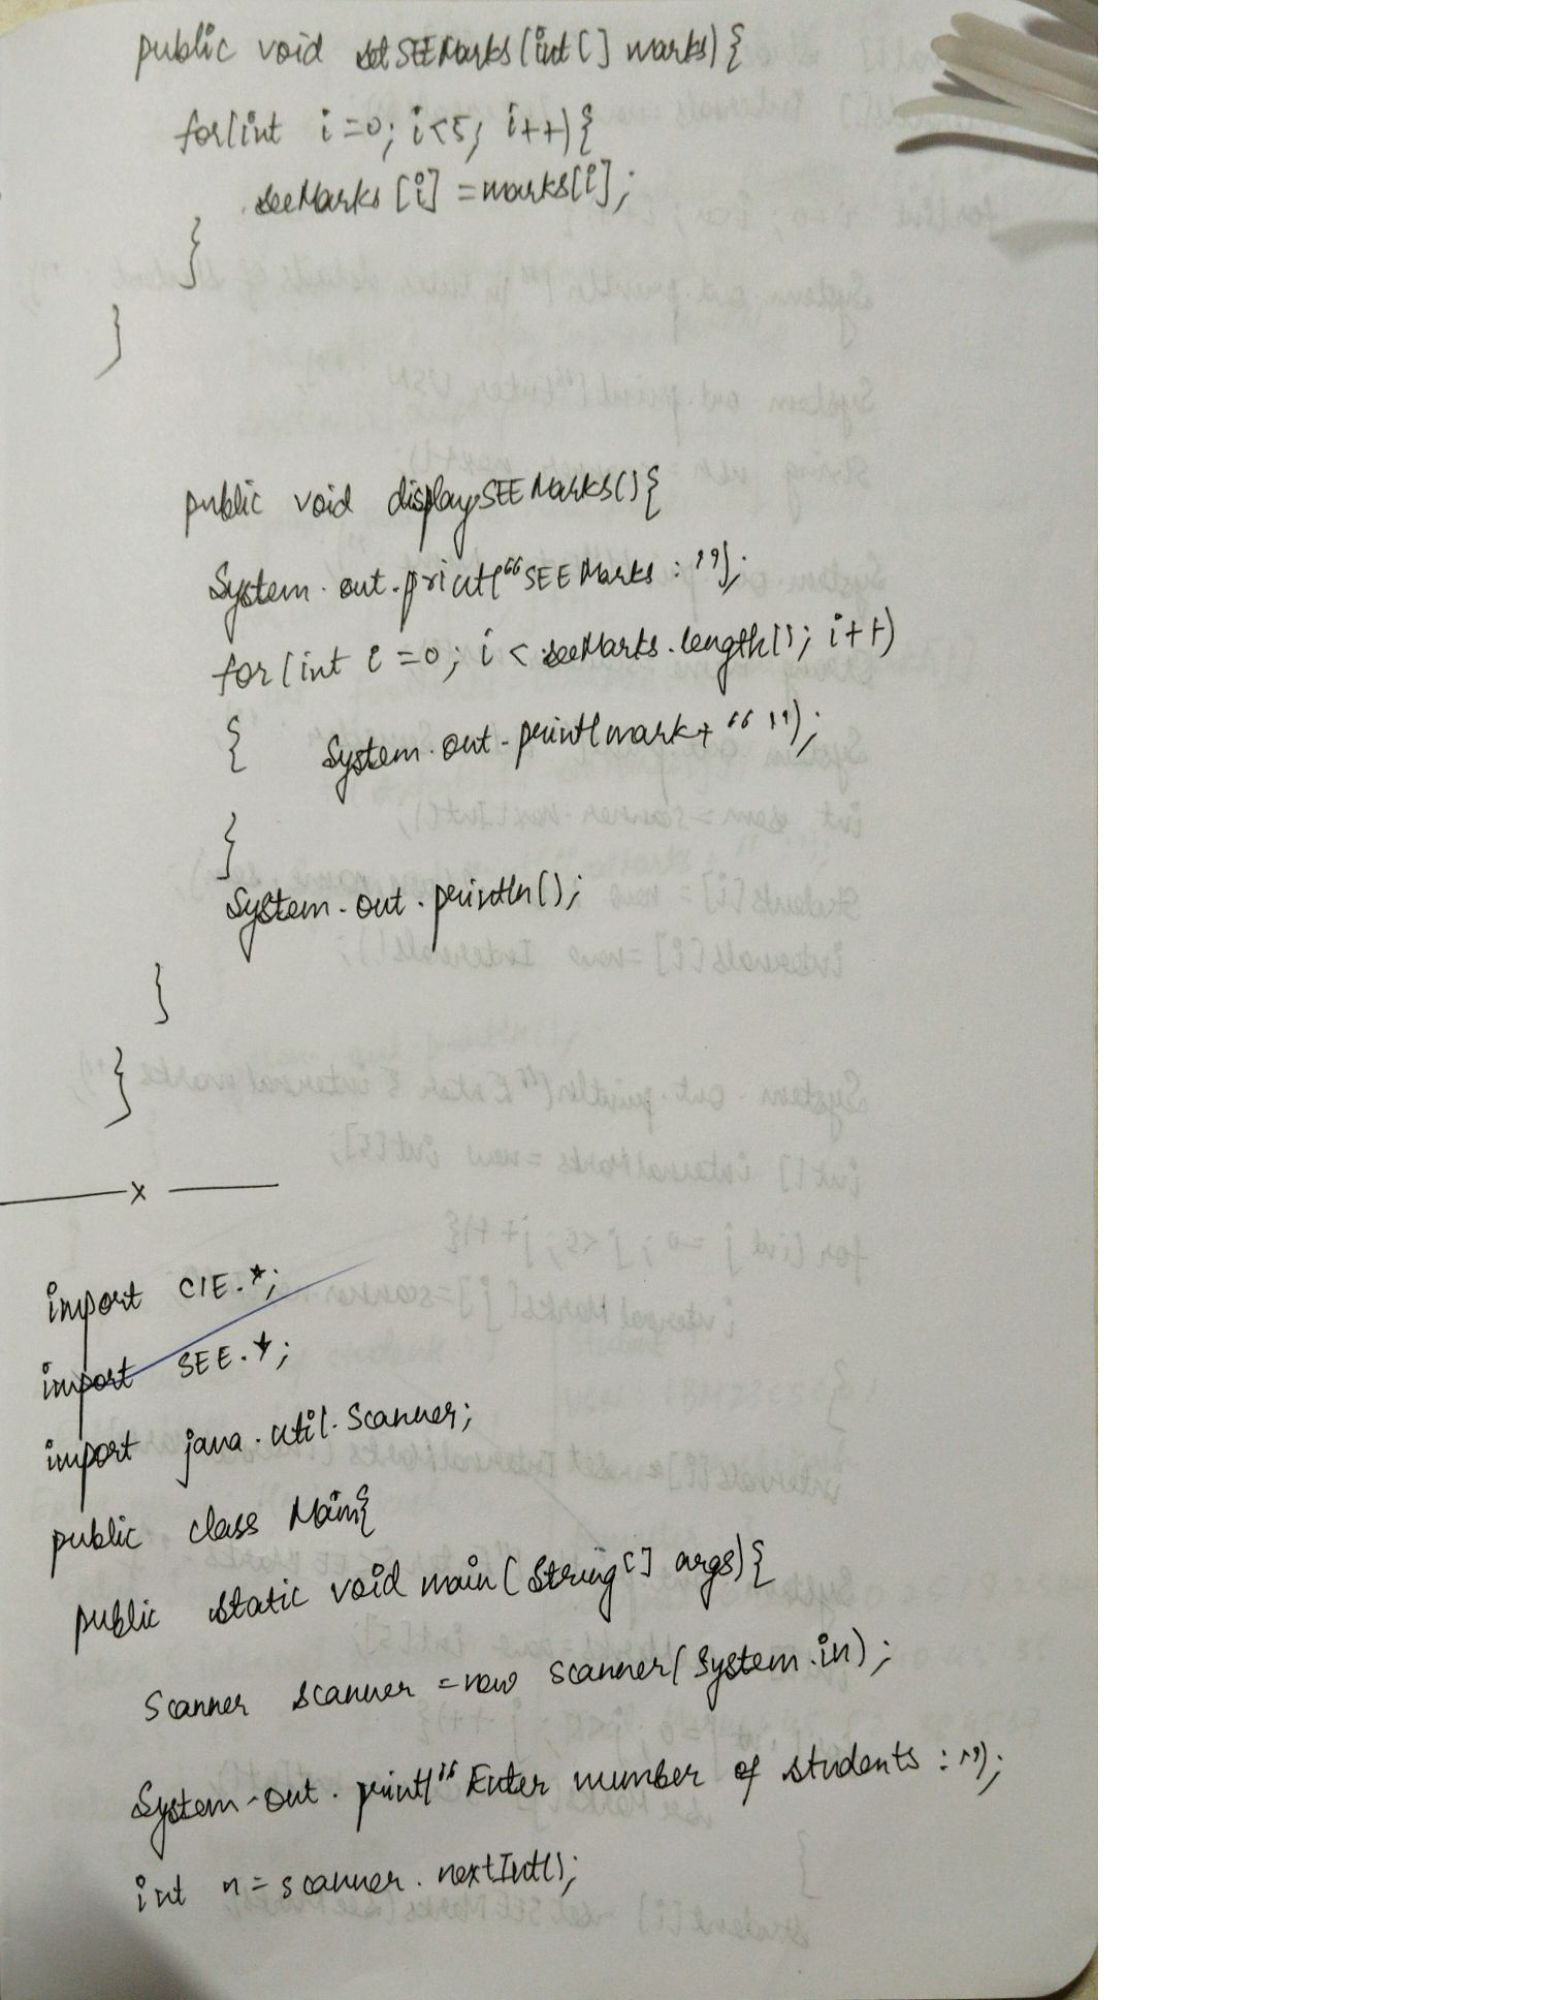 public void setSEEMarks(int[] marks){
for(int i=0; i<5; i++){
seeMarks[i] = marks[i];
}
}
public void displaySEEMarks(){
System.out.print("SEE Marks : ");
for(int i=0; i < seeMarks.length(); i++)
{ System.out.print(mark+ " ");
}
System.out.println();
}
}
x
import CIE.*;
import SEE.*;
import java.util.Scanner;
public class Main{
public static void main(String[] args){
Scanner scanner = new Scanner(System.in);
System.out.print("Enter number of students : ");
int n = scanner.nextInt();